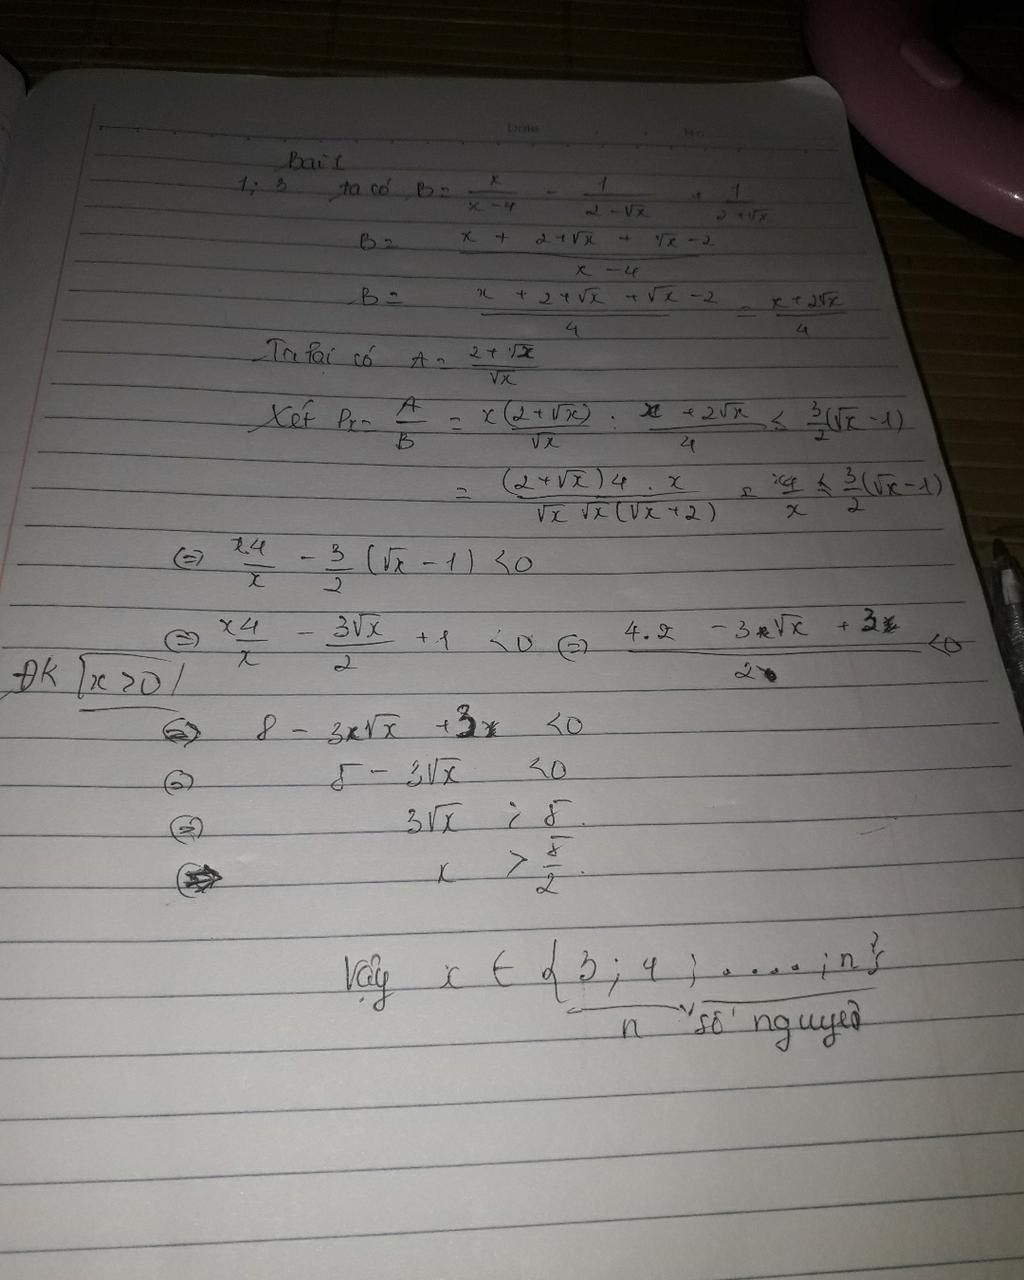 Date No.
Bài 1
1; 3 ta có B = x/(x-4) - 1/(2-√x) + 1/(2+√x)
B = (x + 2+√x + √x-2)/(x-4)
B = (x + 2+√x + √x-2)/4 = (x+2√x)/4
Ta lại có A = (2+√x)/√x
Xét Px = A/B = x(2+√x)/√x : (x+2√x)/4 ≤ 3/2(√x-1)
= ((2+√x)4.x)/(√x √x(√x+2)) = x4/x ≤ 3/2(√x-1)
(=) x.4/x - 3/2(√x-1) <0
(=) x4/x - 3√x/2 + 1 <0 (=) (4.2 - 3x√x + 3x)/2 <0
ĐK x>0
(=) 8 - 3x√x + 3x <0
(=) 8 - 3√x <0
(=) 3√x > 8.
x > 8/2.
Vậy x ∈ {3; 4; .....; n}
n số nguyên